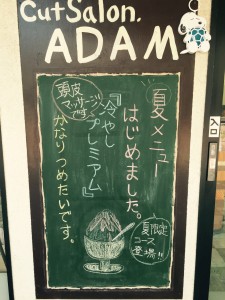 CutSalon.
ADAM
夏メニュー
はじめました。
『冷やし
プレミアム』
頭皮
マッサージ
です
かなりつめたいです。
夏限定
コース
登場!!
入口